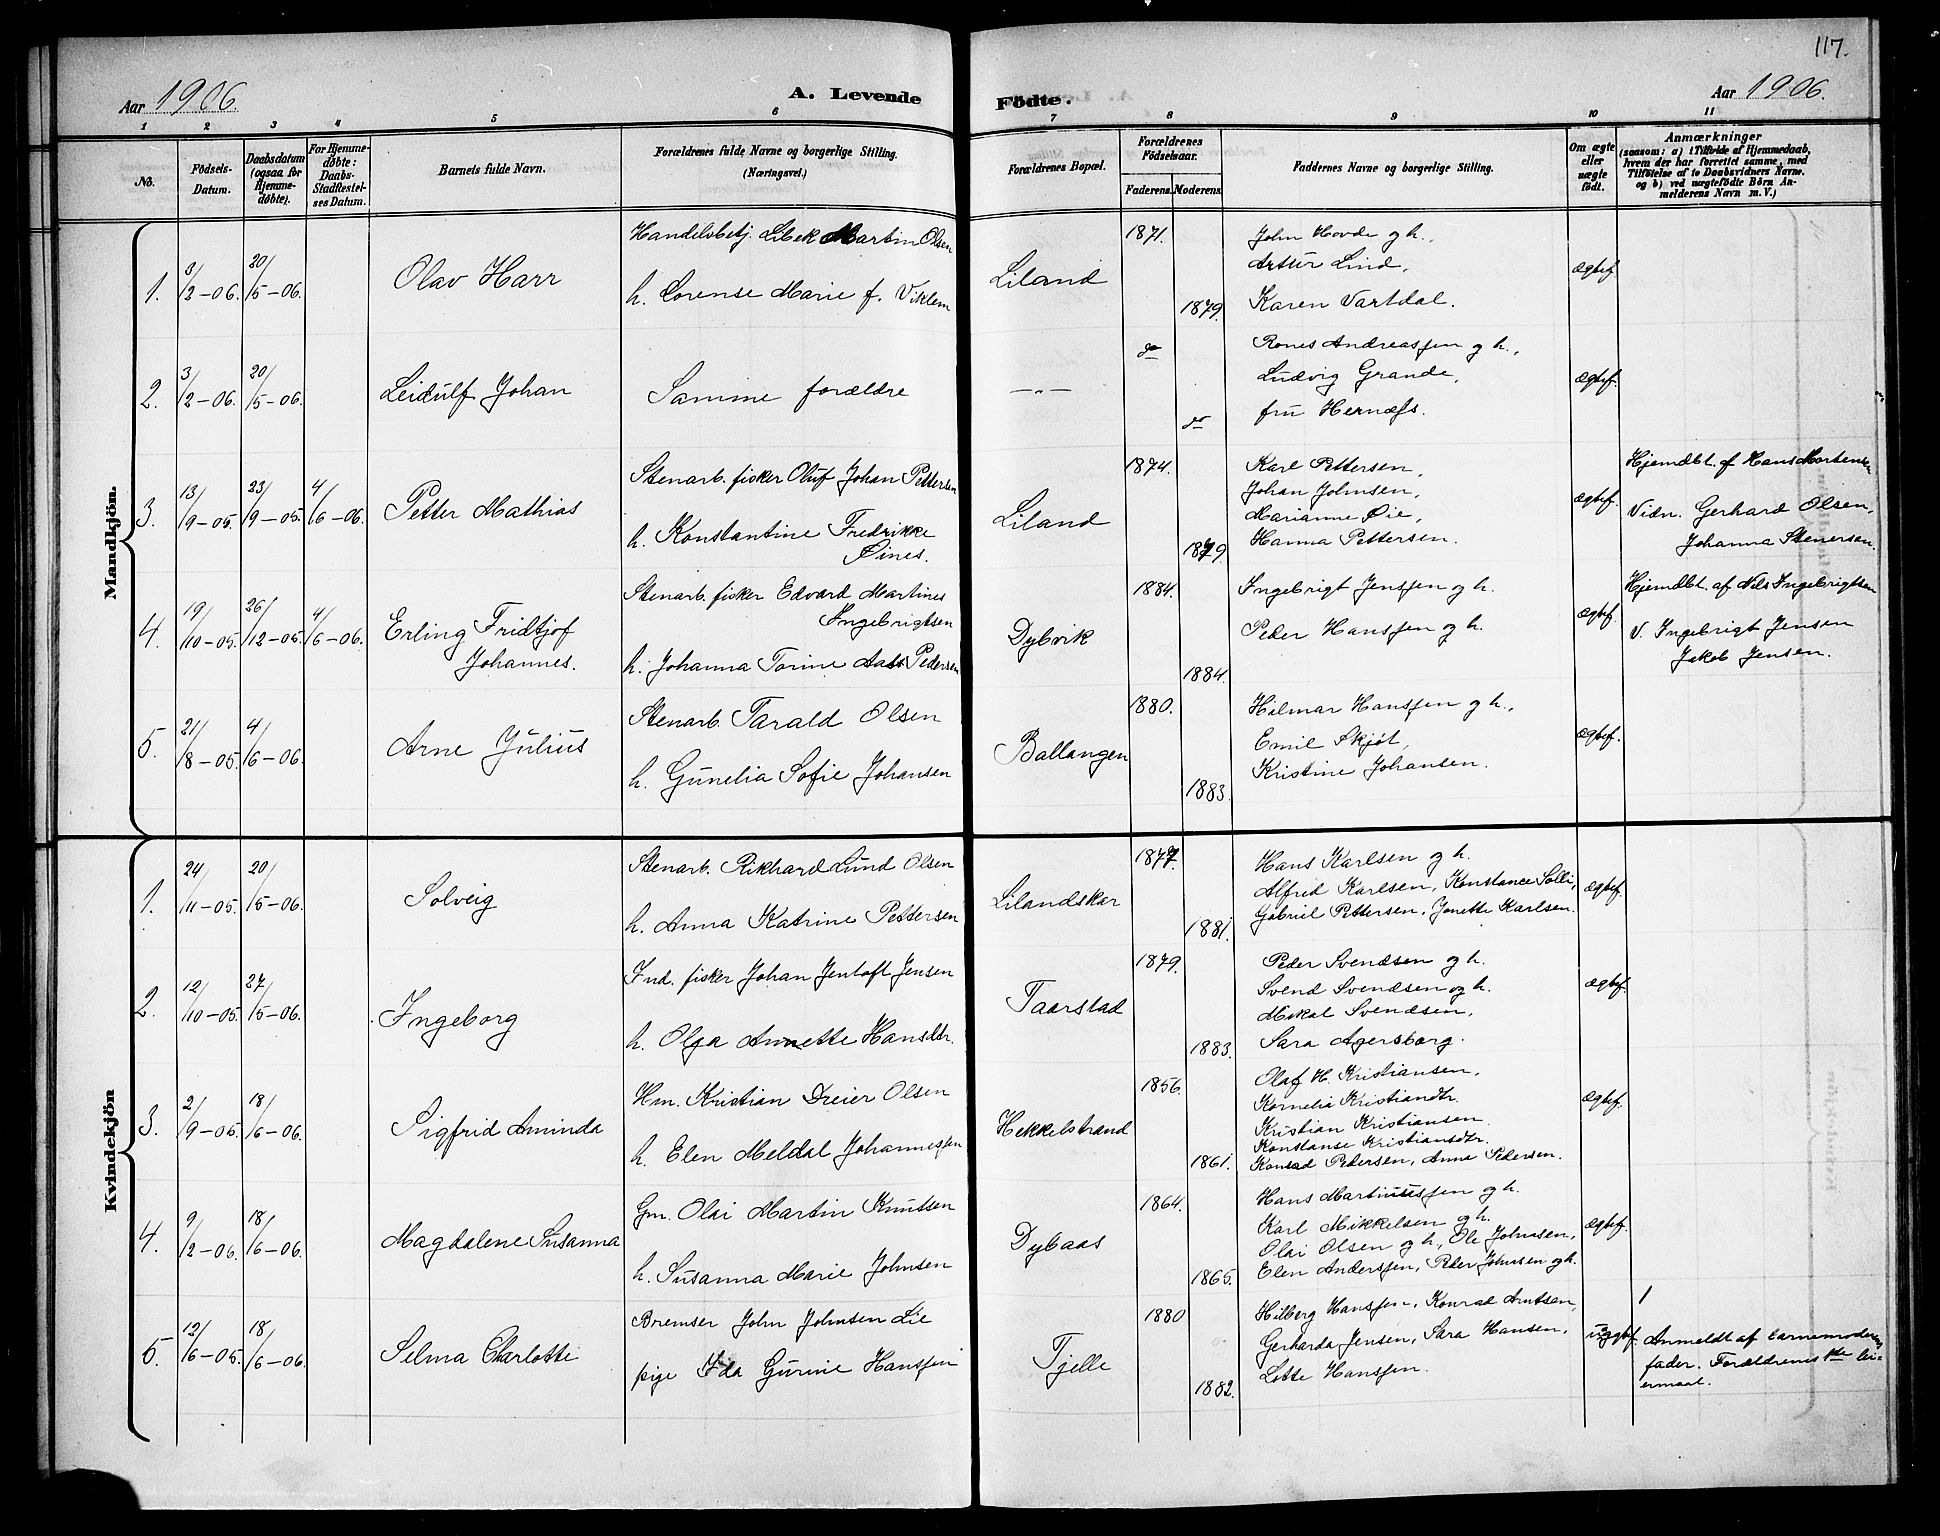 117.
Aar 1906.
A. Levende
Födte.
Aar 1906.
1 2 3 4 5 6 7 8 9 10 11
No.
Födsels-
Datum.
Daabsdatum
(ogsaa for
Hjemme-
døbte).
For Hjemme-
døbte:
Daabs-
Stadfæstel-
ses Datum.
Barnets fulde Navn.
Forældrenes fulde Navne og borgerlige Stilling.
(Næringsvei.)
Forældrenes Bopæl.
Forældrenes
Födselsaar.
Faderens. Moderens.
Faddernes Navne og borgerlige Stilling.
Om ægte
eller
uægte
födt.
Anmærkninger
(saasom: a) i Tilfælde af Hjemmedaab,
hvem der har forrettet samme, med
Tilföielse af to Daabsvidners Navne.
og b) ved uægtefödte Börn An-
melderens Navn m. V.)
Mandkjön.
1. 3/2-06. 20/5-06.
Olav Harr
Handelsbetj. Libek Martin Olsen
h. Lorense Marie f. Viklem
Liland
1871.
1879.
John Hovde og h.,
Arttur Lind,
Karen Vartdal.
ægtef.
2. 3/2-06. 20/5-06.
Leidulf Johan
Samme forældre
-„-
do
do
Rones Andreassen og h.,
Ludvig Grande,
fru Hernæss.
ægtef.
3. 13/9-05. 23/9-05. 4/6-06.
Petter Mathias
Stenarb. fisker Oluf Johan Pettersen
h. Konstantine Fredrikke
Øines.
Liland
1874.
1879.
Karl Pettersen,
Johan Johnsen,
Marianne Øie,
Hanna Pettersen.
ægtef.
Hjemdbt. af Hans Mortensen
Vidn. Gerhard Olsen,
Johanna Stenersen.
4. 19/10-05. 26/12-05. 4/6-06.
Erling Fridtjof
Johannes.
Stenarb. fisker Edvard Martines
Ingebrigtsen
h. Johanna Torine Aass Pedersen
Dybvik
1884.
1884.
Ingebrigt Jenssen og h.
Peder Hanssen og h.
ægtef.
Hjemdbt. af Nils Ingebrigtsen
V. Ingebrigt Jensen
Jakob Jensen.
5. 21/8-05. 4/6-06.
Arne Julius
Stenarb. Tarald Olsen
h. Gunelia Sofie Johansen
Ballangen
1880.
1883.
Hilmar Hanssen og h.,
Emil Skjöt,
Kristine Johansen.
ægtef.
Kvindekjön
1. 24/11-05. 20/5-06.
Solveig
Stenarb. Rikhard Lund Olsen
h. Anna Katrine Pettersen
Lilandskar
1877.
1881.
Hans Karlsen og h.
Alfred Karlsen, Konstance Solli,
Gabriel Pettersen, Jonette Karlsen.
ægtef.
2. 12/10-05. 27/5-06.
Ingeborg
Ind. fisker Johan Jentoft Jensen
h. Olga Annette Hansdtr.
Taarstad
1879.
1883.
Peder Svendsen og h.
Svend Svendsen og h.
Mikal Svendsen,
Sara Agersborg.
ægtef.
3. 2/9-05. 18/6-06.
Sigfrid Aminda
Hm. Kristian Dreier Olsen
h. Elen Meldal Johannessen
Hekkelstrand
1856.
1861.
Olaf H. Kristiansen,
Kornelia Kristiandtr.
Kristian Kristiansen
Konstanse Kristiansdtr.
Konrad Pedersen, Anna Pedersen.
ægtef.
4. 9/2-06. 18/6-06.
Magdalene Susanna
Gm. Olai Martin Knutsen
h. Susanna Marie Johnsen
Dybaas
1864.
1865.
Hans Martinussen og h.
Karl Mikkelsen og h.
Olai Olsen og h., Ole Johnsen,
Elen Anderssen, Peder Johnsen og h.
ægtef.
5. 12/6-05. 18/6-06.
Selma Charlotte
Bremser John Johnsen Lie
pige Ida Gurine Hanssen
Tjelle
1880
1882.
Hilberg Hanssen, Konrad Arntsen,
Gerharda Jensen, Sara Hansen,
Lotte Hanssen.
uægtef.
Anmeldt af barnemoderens
fader. Forældrenes 1ste lei-
ermaal.